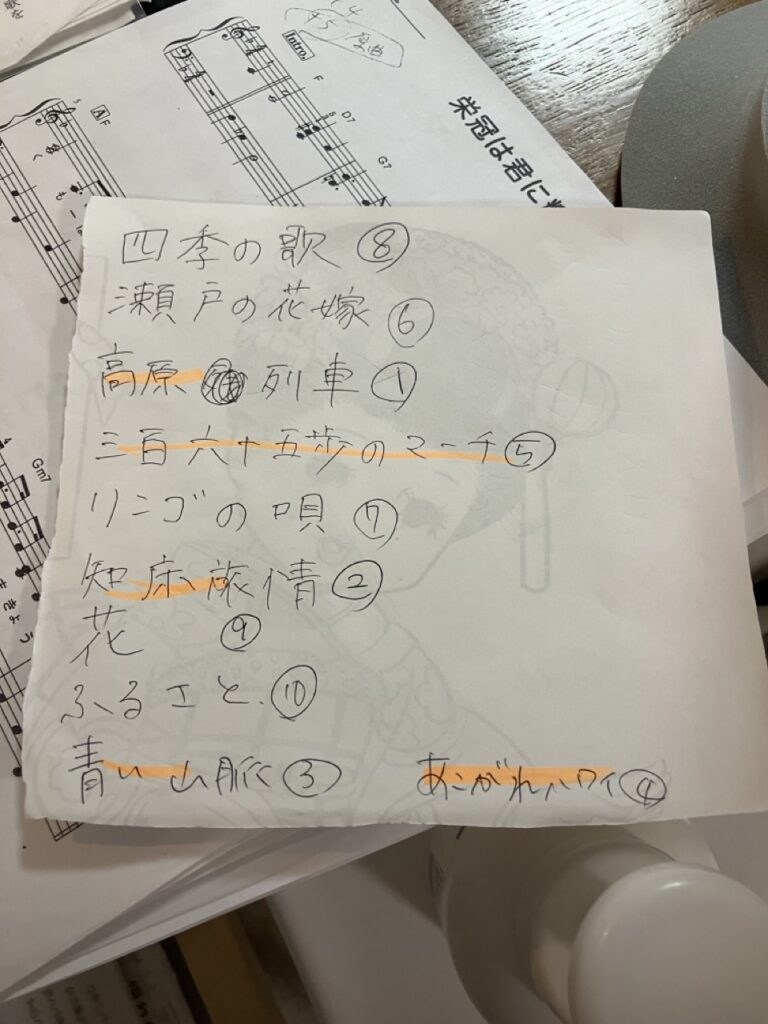 Intro.
F
D7
G7
栄冠は君に
A F
Gm7
四季の歌 ⑧
瀬戸の花嫁 ⑥
高原列車 ①
三百六十五歩のマーチ ⑤
リンゴの唄 ⑦
知床旅情 ②
花 ⑨
ふるさと. ⑩
青い山脈 ③ あこがれハワイ ④